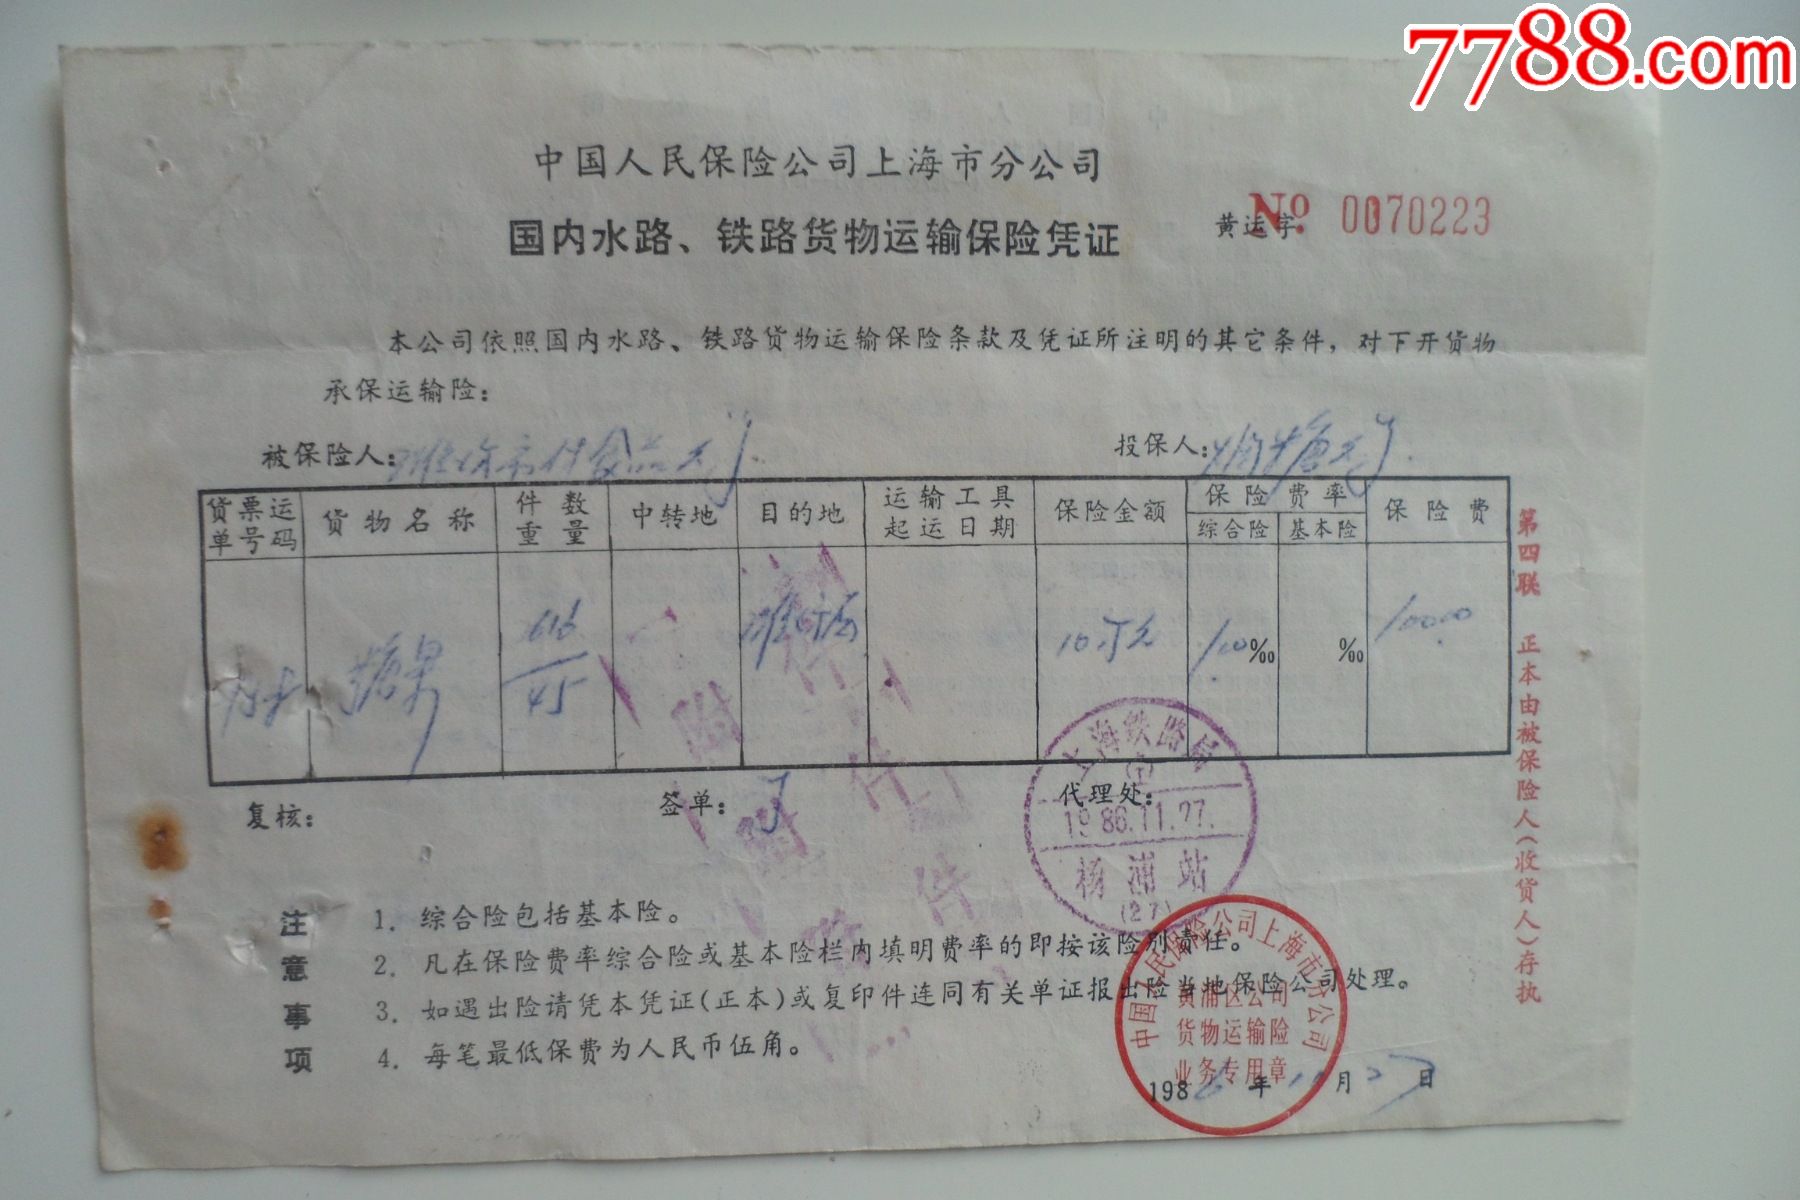 7788.com
中国人民保险公司上海市分公司
国内水路、铁路货物运输保险凭证
黄运字 No. 0070223
本公司依照国内水路、铁路货物运输保险条款及凭证所注明的其它条件，对下开货物
承保运输险：
被保险人：
投保人：
货票运单号码
货物名称
件数重量
中转地
目的地
运输工具起运日期
保险金额
保险费率
综合险
基本险
保险费
糖果
616
45
10万元
1.00‰
‰
100.00
复核：
签单：
代理处：
上海铁路局
1986.11.27.
杨浦站
(27)
附件
附件
附件
注意事项
1. 综合险包括基本险。
2. 凡在保险费率综合险或基本险栏内填明费率的即按该险别责任。
3. 如遇出险请凭本凭证(正本)或复印件连同有关单证报出险当地保险公司处理。
4. 每笔最低保费为人民币伍角。
1986年11月27日
中国人民保险公司上海市分公司
黄浦区公司
货物运输险
业务专用章
第四联 正本由被保险人(收货人)存执